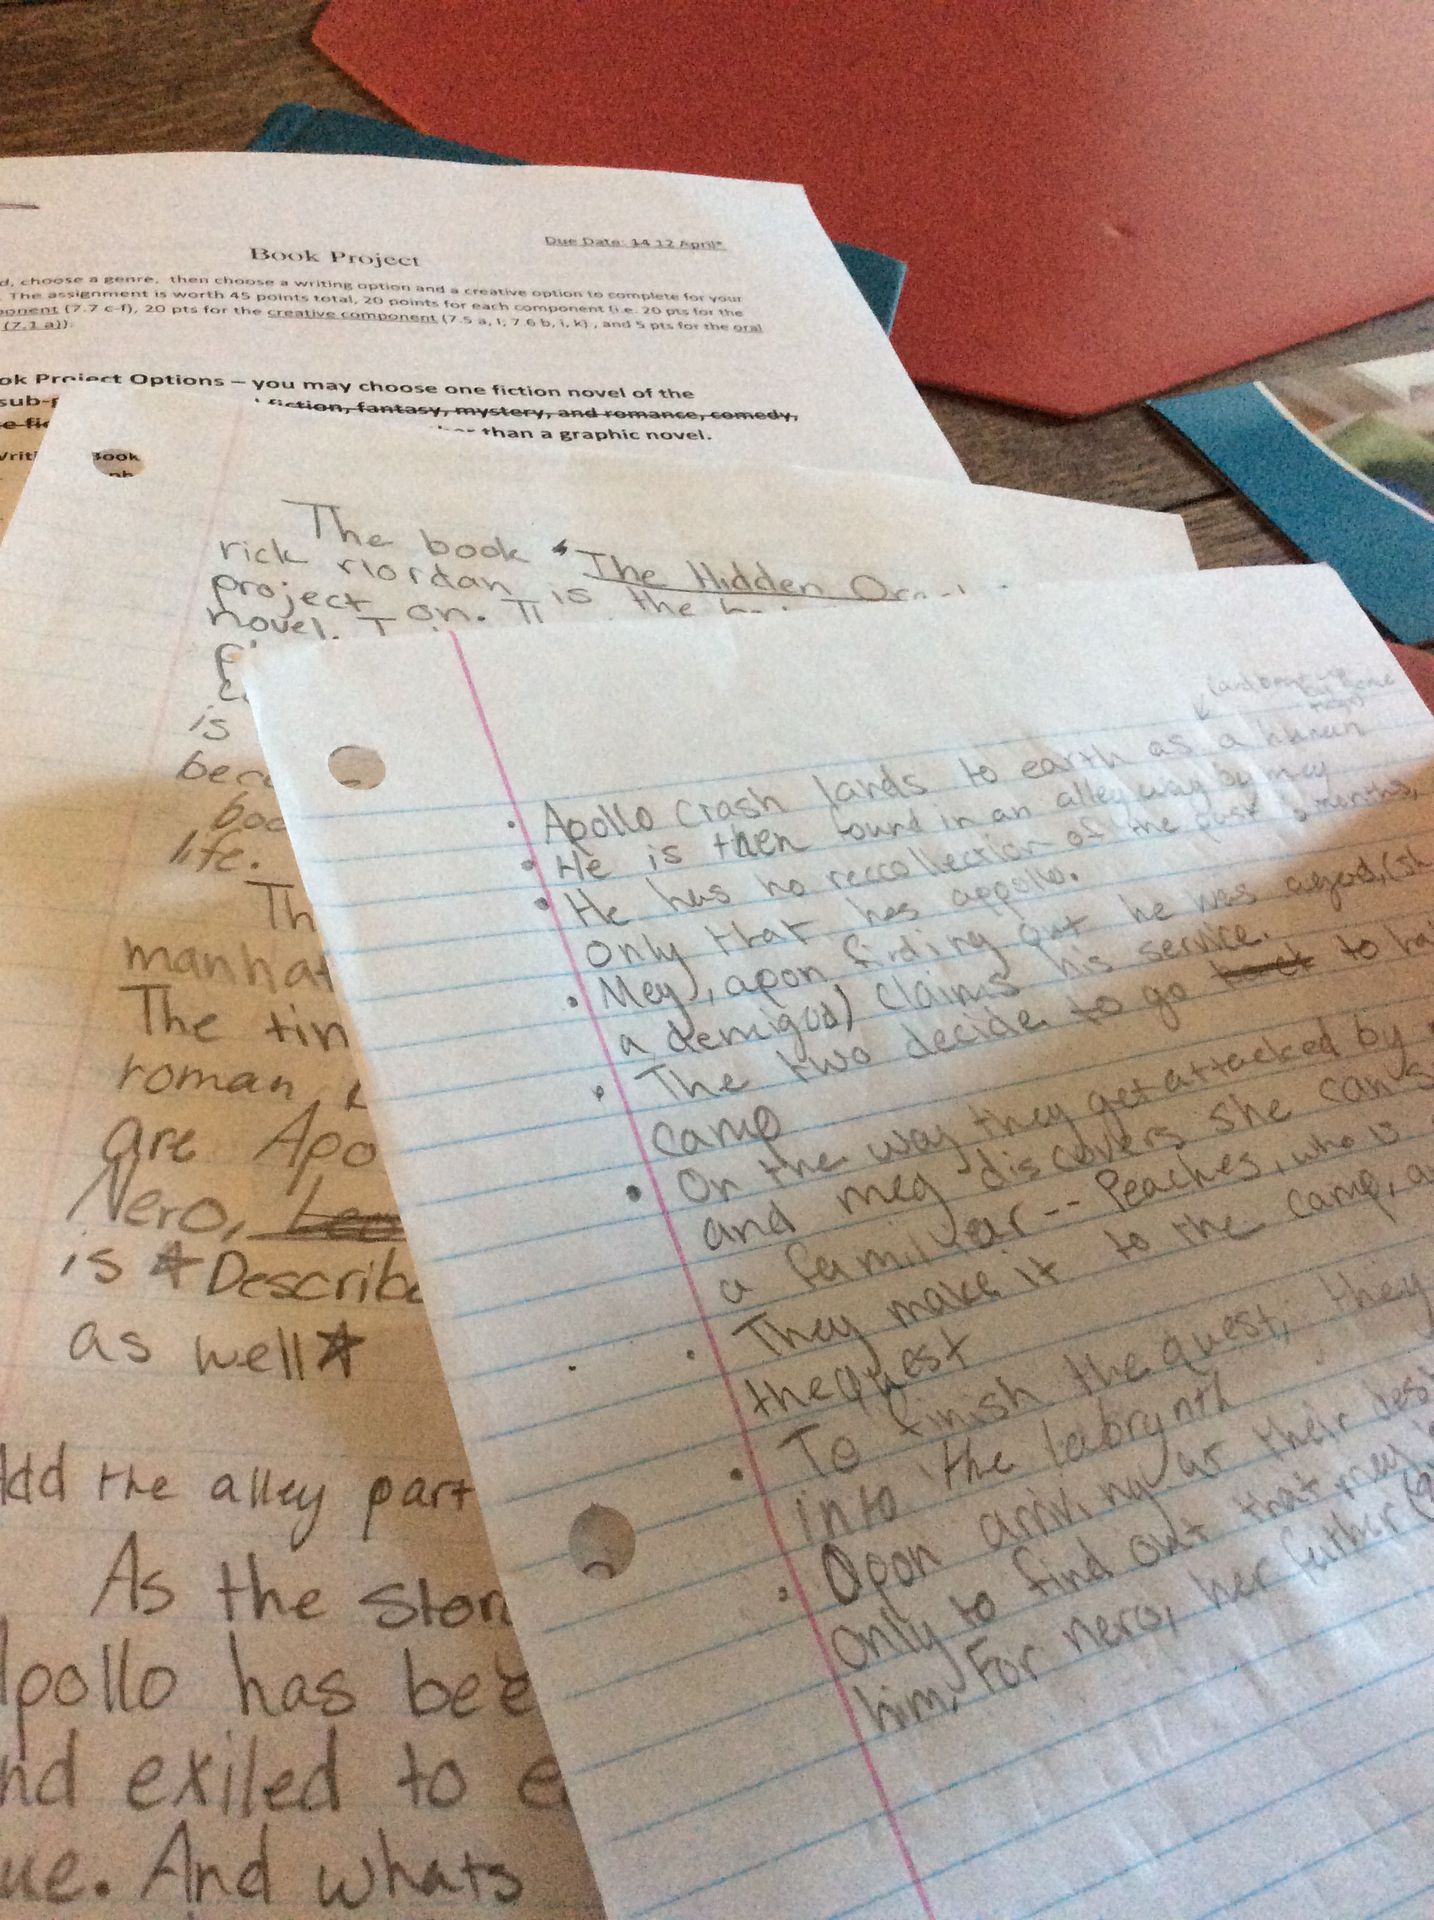 Due Date: 14 12 April*
Book Project
d, choose a genre, then choose a writing option and a creative option to complete for your
. The assignment is worth 45 points total, 20 points for each component (i.e. 20 pts for the
ponent (7.7 c-f), 20 pts for the creative component (7.5 a, i, 7.6 b, i, k), and 5 pts for the oral
(7.1 a)).
ok Project Options – you may choose one fiction novel of the
sub-
fiction, fantasy, mystery, and romance, comedy,
e fic
than a graphic novel.
Writi
Book
The book "The Hidden
rick riordan is the
project on.
novel.
is
bec
boo
life.
Th
manhat
The tim
roman,
are Apo
Nero,
is ☆Describe
as well☆
Add the alley part
As the stor
Apollo has bee
nd exiled to e
ue. And whats
• Apollo crash lands to earth as a human
• He is then found in an alley way by mey
• He has no reccollection of the past 6 months,
only that hes appollo.
• Mey, apon finding out he was a god, (sh
a demigod) claims his service.
• The two decide to go to ha
camp
• On the way they get attacked by
and meg discovers she can s
a familyar -- Peaches, who is
• They make it to the camp, a
the quest
• To finish the quest, they
into the labrynth
• Opon arriving at their dest
only to find out that mey
him, For nero, her father